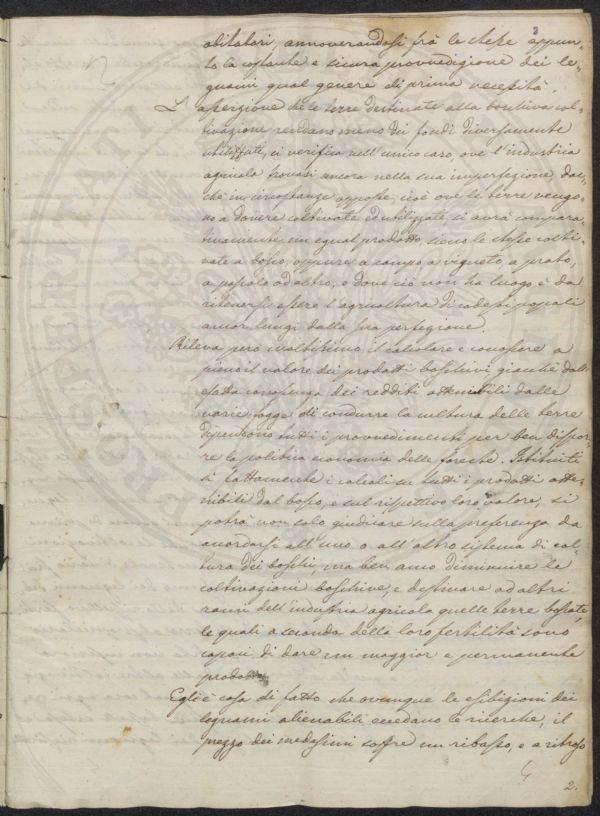 2
abitatori, annoverandosi frà le stesse appun-
to la costante e sicura provvedigione dei le-
gnami qual genere di prima necessità.
L'asserzione che le terre destinate alla boschiva col-
tivazione rendano meno dei fondi diversamente
utilizzati, si verifica nell'unico caso, ove l'industria
agricola trovasi ancora nella sua imperfezione, dac-
chè in circostanze opposte, cioè ove le terre vengo-
no a dovere coltivate, ed utilizzate si avrà compara-
tivamente un egual prodotto, siano le stesse colti-
vate a bosco, oppure a campo a vigneto, a prato,
a pascolo od altro, e dove ciò non ha luogo è da
ritenersi essere l'agricoltura di codesti popoli
ancor lungi dalla sua perfezione.
Rileva però moltissimo il calcolare e conoscere a
pieno il valore dei prodotti boschivi giacchè dall'
esatta conoscenza dei redditi ottenibili dalle
varie fogge di condurre la cultura delle terre
dipendono tutti i provvedimenti per ben dispor-
re la politica economia delle foreste. Istituiti
sì fattamente i calcoli su tutti i prodotti otte-
nibili dal bosco, e sul rispettivo loro valore, si
potrà non solo giudicare sulla preferenza da
accordarsi all'uno o all'altro sistema di col-
tura dei boschi, ma ben anco diminuire la
coltivazione boschiva, e destinare ad altri
rami dell'industria agricola quelle terre boscate,
le quali a seconda della loro fertilità sono
capaci di dare un maggior e permanente
prodotto.
Egli è cosa di fatto che ovunque le esibizioni dei
legnami alienabili eccedano le ricerche, il
prezzo dei medesimi soffre un ribasso, e a ritroso
2.
PROSPERITATI